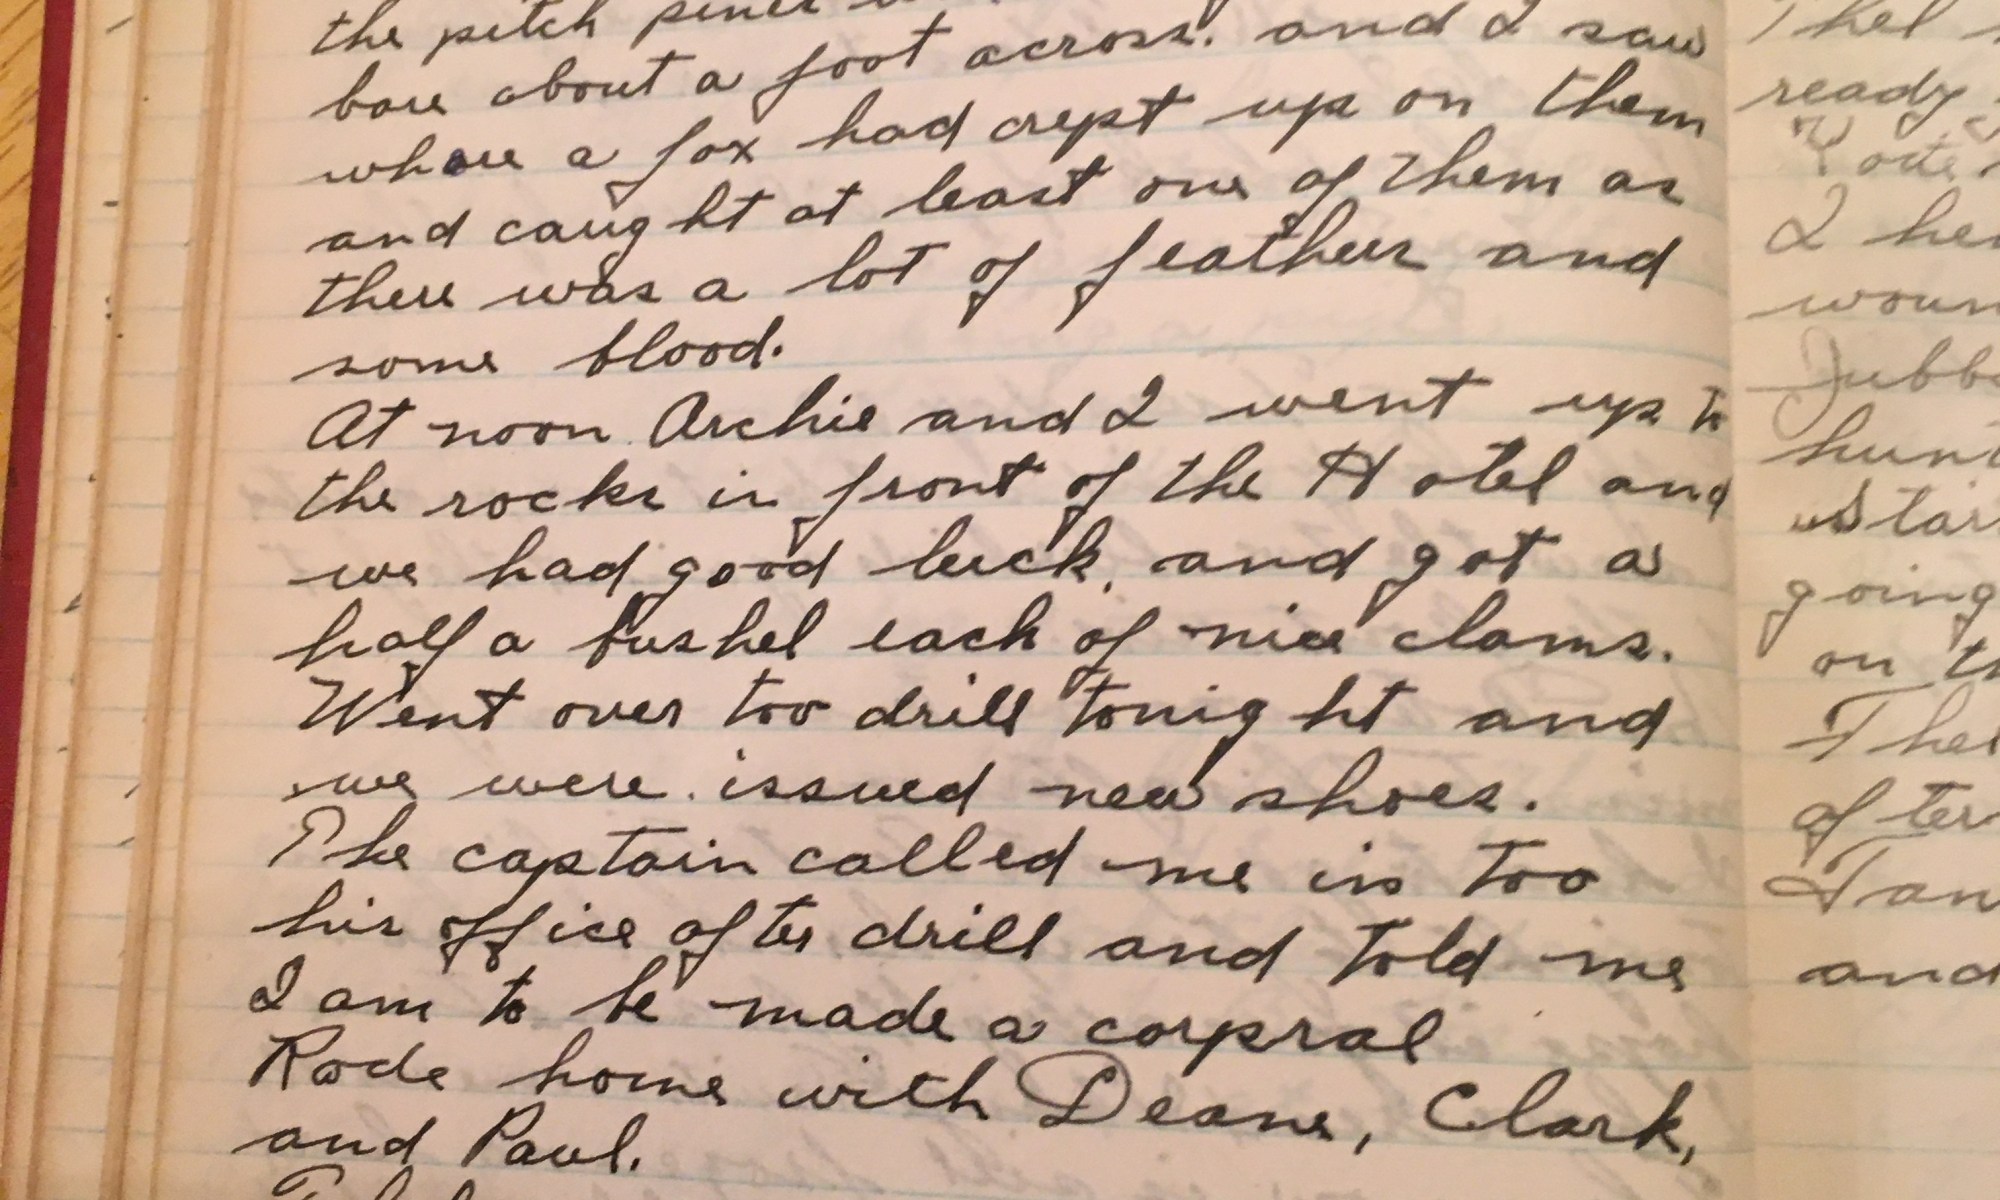 the pitch pines
bare about a foot across. and I saw
where a fox had crept up on them
and caught at least one of them as
there was a lot of feathers and
some blood.
At noon Archie and I went up to
the rocks in front of the Hotel and
we had good luck, and got a
half a bushel each of nice clams.
Went over too drill tonight and
we were issued new shoes.
The captain called me in too
his office after drill and told me
I am to be made a corpral
Rode home with Deane, Clark,
and Paul.
ready
I
going
on
after
and